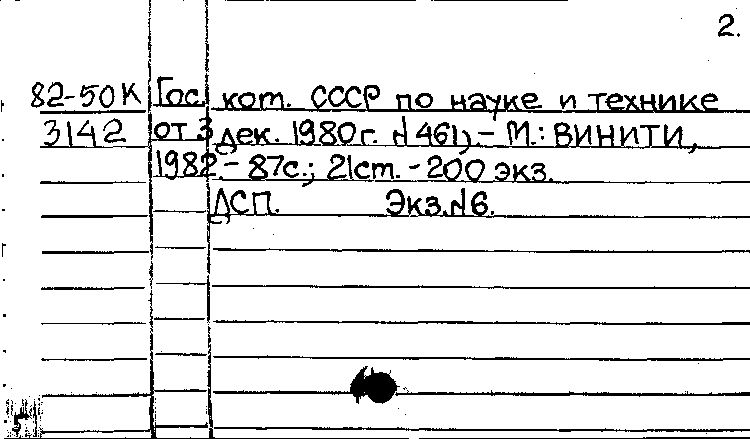 2.
82-50К Гос. кот. СССР по науке и технике
3142 от 3 дек. 1980г. №461). - М.: ВИНИТИ,
1982. - 87с.; 21ст. - 200 экз.
ДСП. Экз. №6.